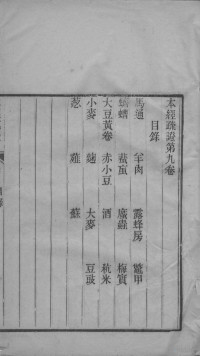 本經疏證第九卷
目錄
馬通 羊肉 露蜂房 鼈甲
蠐螬 蜚蝱 䗪蟲 梅實
大豆黃卷 赤小豆 酒 秔米
小麥 麴 大麥 豆豉
蔥 薤 蘇